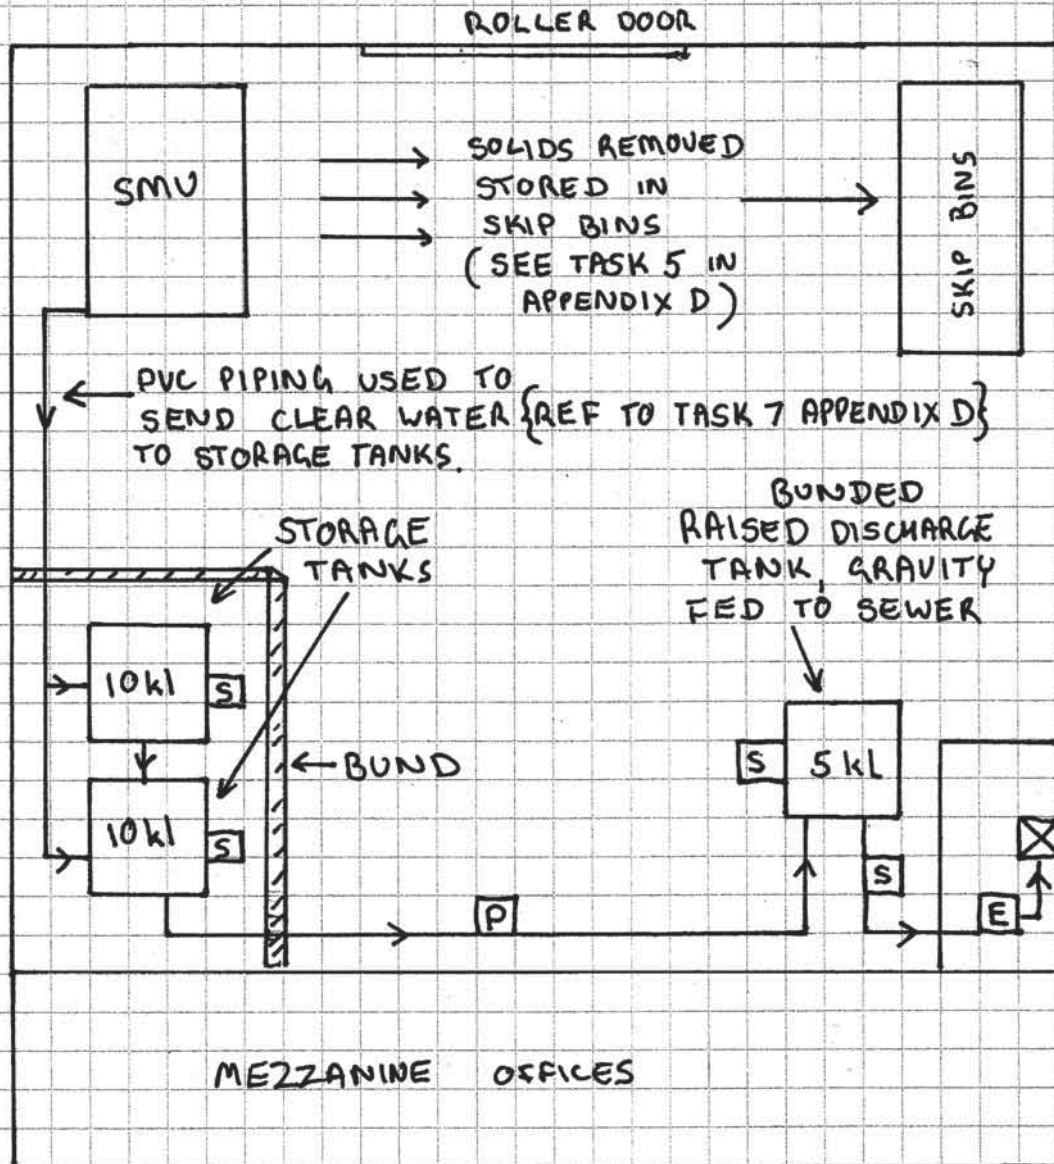 ROLLER DOOR
SMU
SOLIDS REMOVED
STORED IN
SKIP BINS
(SEE TASK 5 IN
APPENDIX D)
SKIP BINS
PVC PIPING USED TO
SEND CLEAR WATER {REF TO TASK 7 APPENDIX D}
TO STORAGE TANKS.
STORAGE
TANKS
BUNDED
RAISED DISCHARGE
TANK, GRAVITY
FED TO SEWER
10kl
S
BUND
S
5kL
10kl
S
S
P
E
MEZZANINE OFFICES